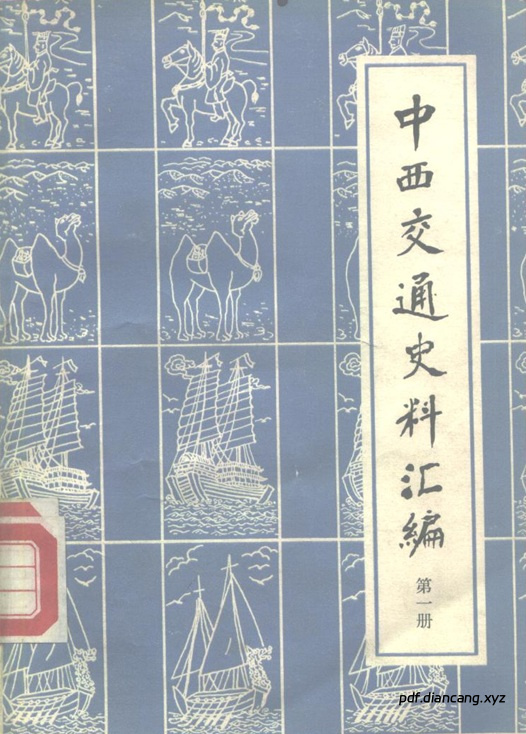 中西交通史料汇编
第一册
pdf.diancang.xyz